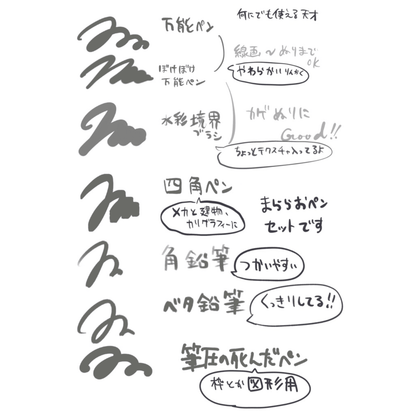 何にでも使える天才
万能ペン
線画〜ぬりまで
OK
ぼけぼけ
万能ペン
やわらかいりんかく
水彩境界
ブラシ
カゲぬりに
Good!!
ちょっとテクスチャ入ってるよ
四角ペン
メカと建物、
カリグラフィーに
まららおペン
セットです
角鉛筆
つかいやすい
ベタ鉛筆
くっきりしてる!!
筆圧の死んだペン
枠とか図形用